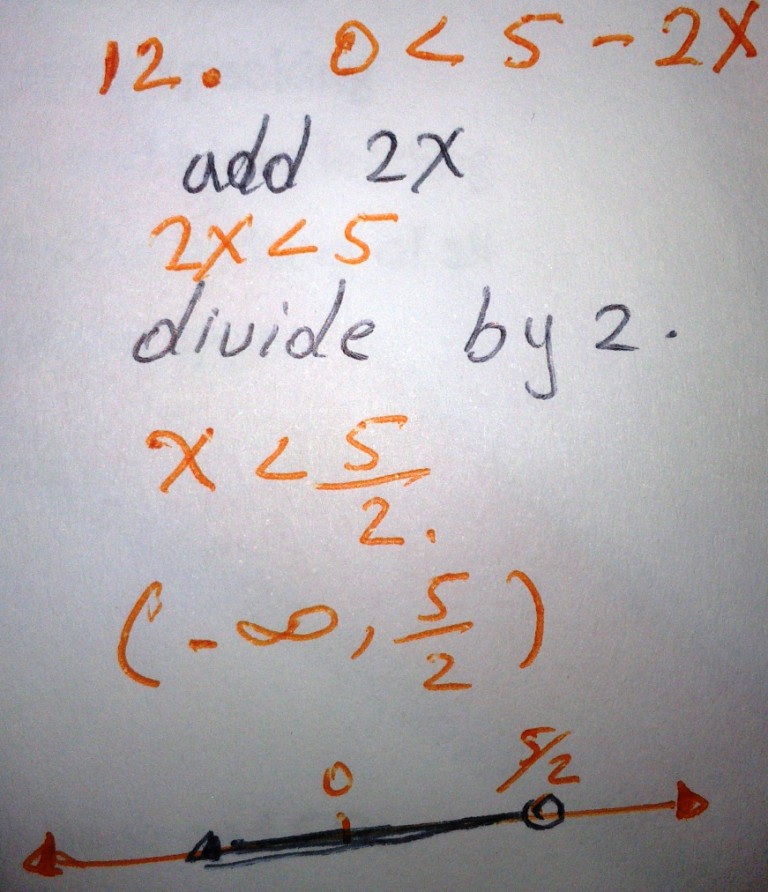 12. 0 < 5 - 2x
add 2x
2x < 5
divide by 2.
x < 5/2.
(-∞, 5/2)
0 5/2